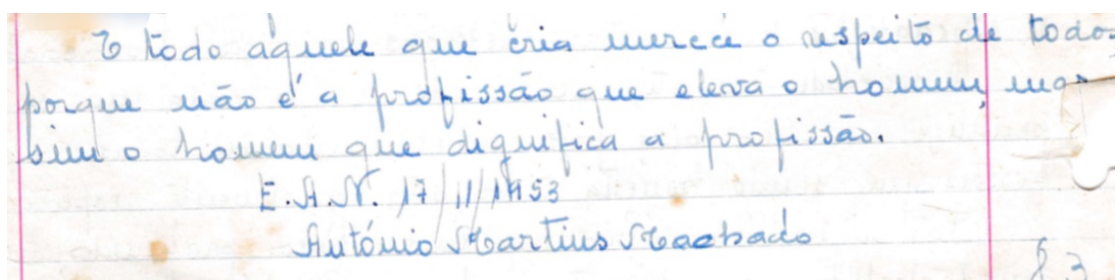 E todo aquele que cria merece o respeito de todo
porque não é a profissão que eleva o homem, mas
sim o homem que dignifica a profissão.
E.A.N. 17/11/1953
António Martins Machado